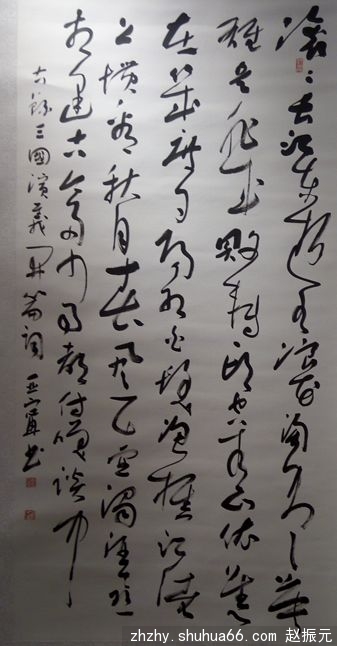 滚〻長江东逝水浪花淘尽英
雄是非成敗轉頭空青山依舊
在幾度夕陽红白髮漁樵江渚
上惯看秋月春风一壶濁酒喜
相逢古今多少事都付笑谈中
右録三國演義开篇詞 亚 書
zhzhy.shuhua66.com 赵振元